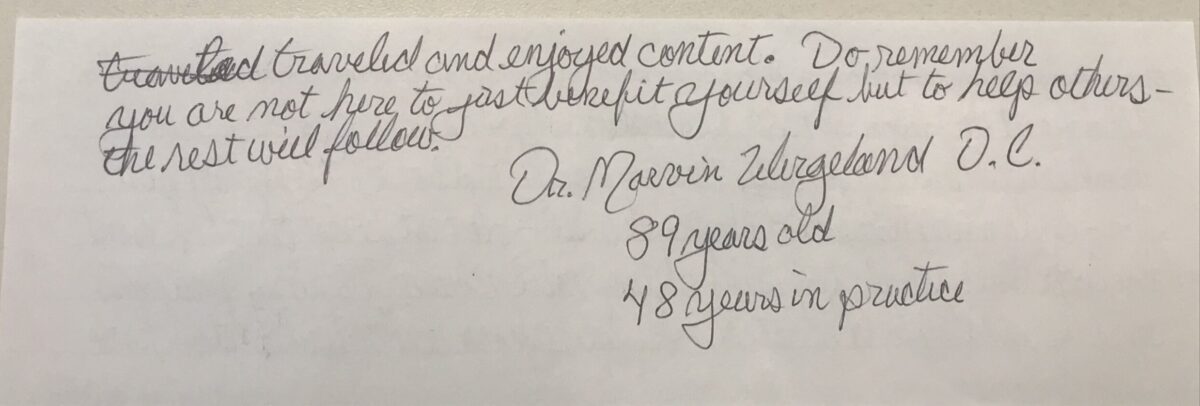 traveled and enjoyed content. Do remember
you are not here to just benefit yourself but to help others-
the rest will follow.
Dr. Marvin D.C.
89 years old
48 years in practice